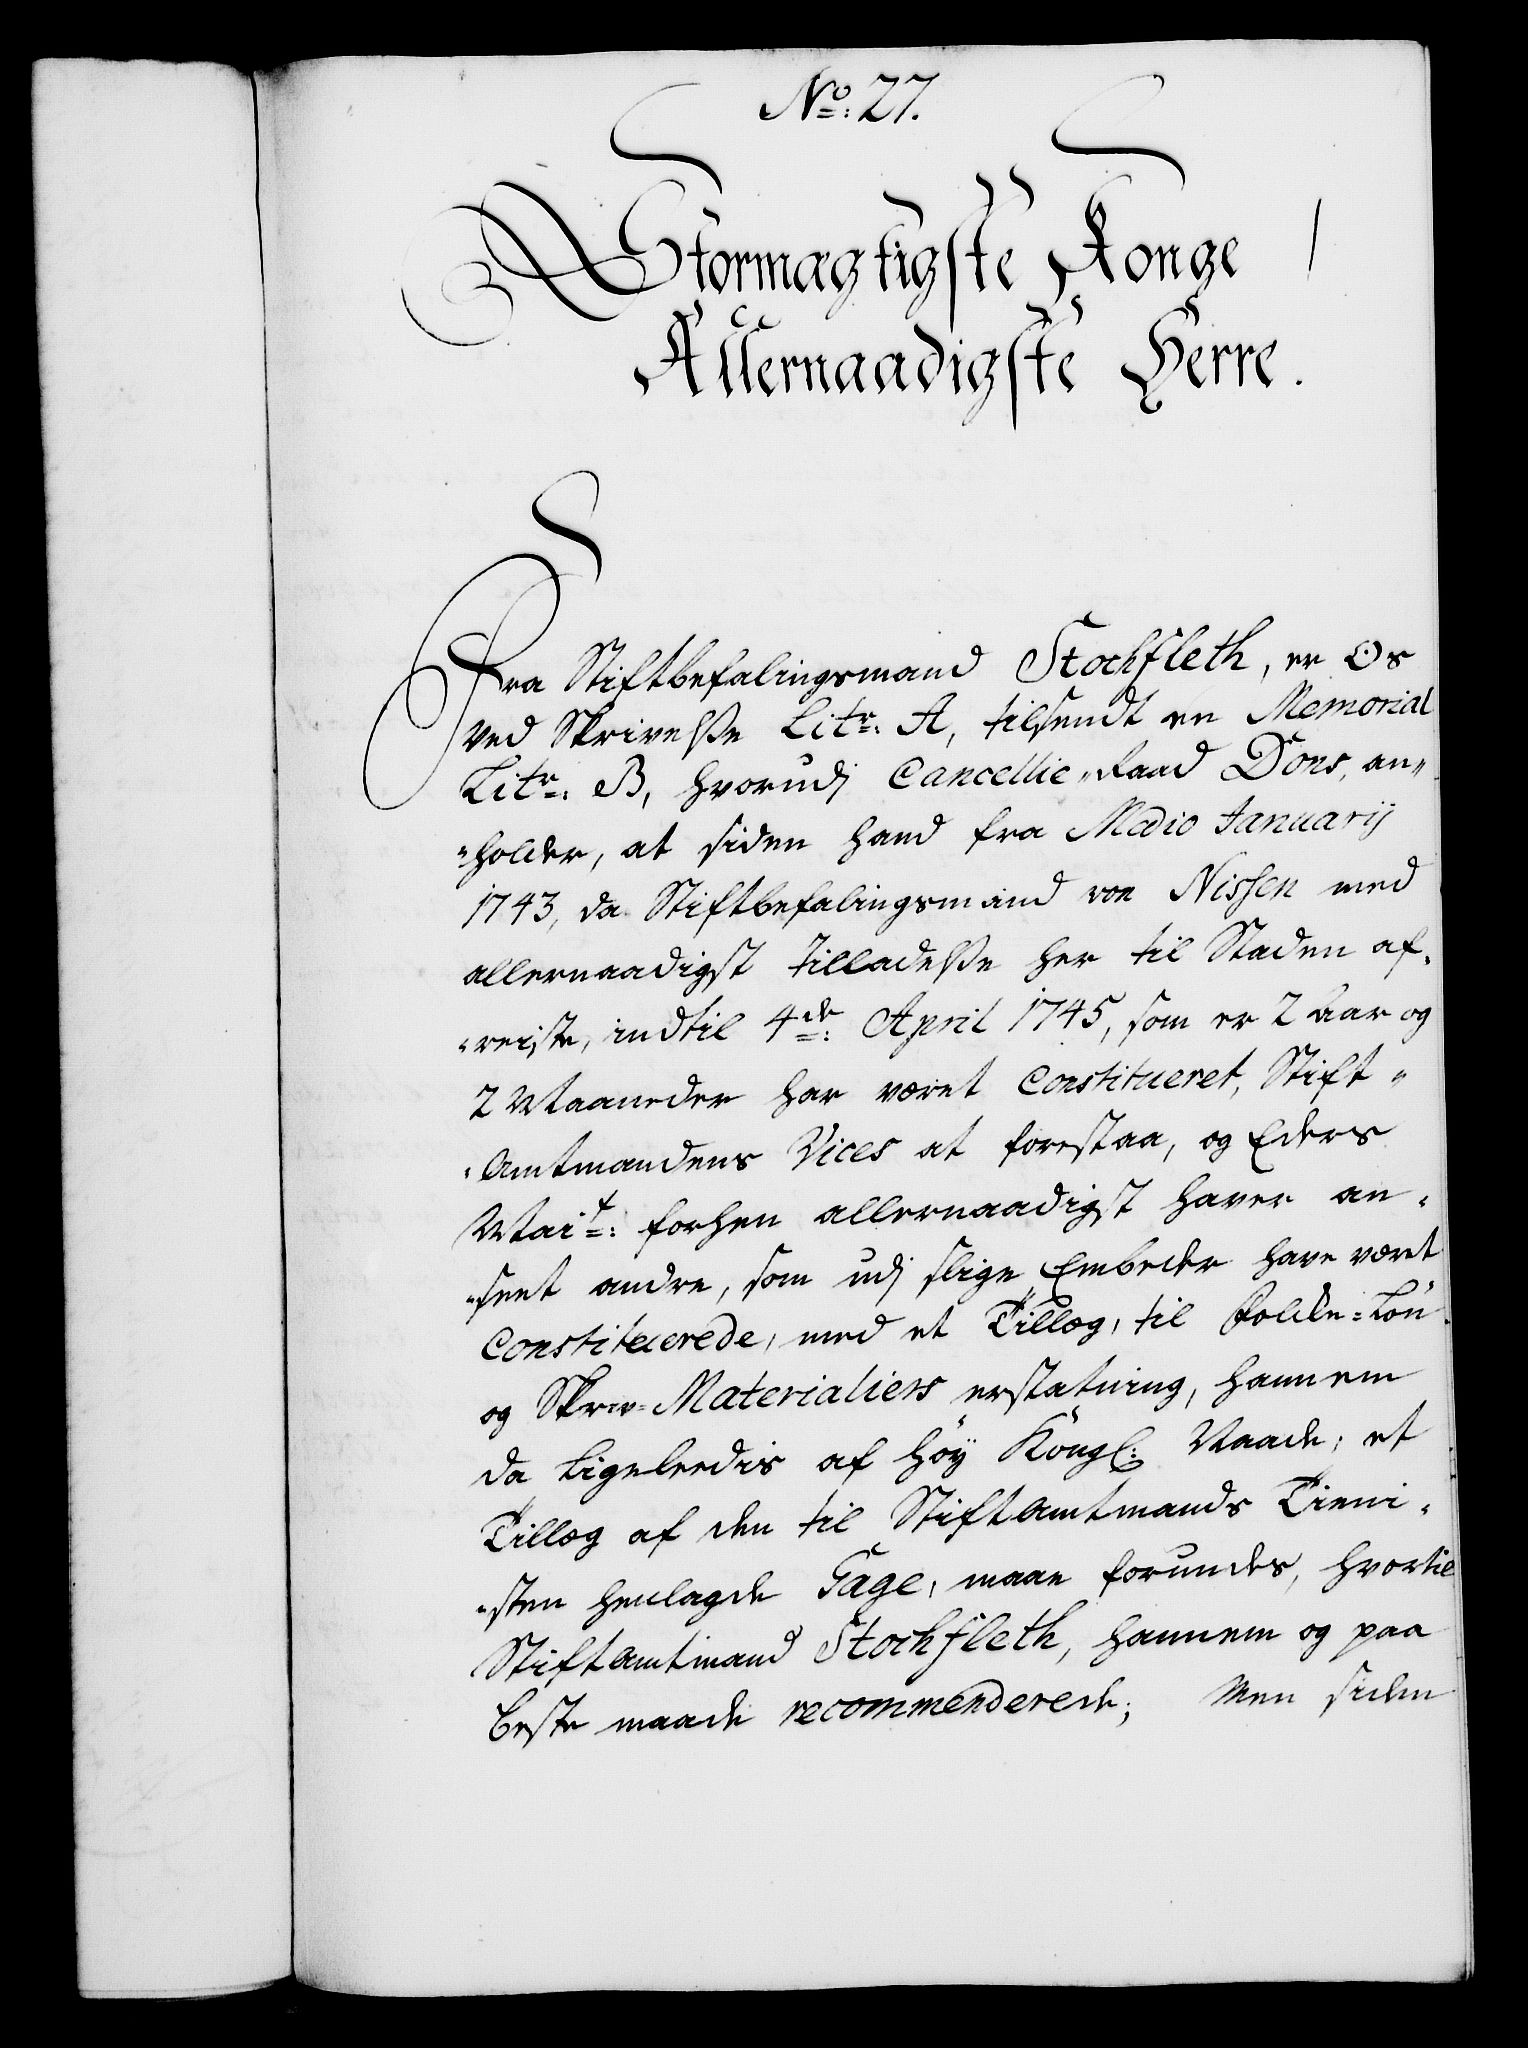 No: 27.
Stormægtigste Konge
Allernaadigste Herre.
Fra Stiftbefalingsmand Stochfleth, er Os
ved Skrivelsse Litr: A, tilsendt en Memorial
Litr: B, hvorudj Cancellie„Raad Dons, an„
„holder, at siden hand fra Medio Januarij
1743, da Stiftbefalingsmand von Nissen med
allernaadigst Tilladelsse her til Staden af„
„reiste, indtil 4de: April 1745, som er 2 Aar og
2 Maaneder har været Constitueret, Stift„
„Amtmandens Vices at forestaa, og Eders
Mait: forhen allernaadigst haver an„
„seet andre, som udj slige Embeder have været
Constituerede, med et Tillæg, til Folke=Løn
og Skriv=Materialiers erstatning, hannem
da ligeledis af Høy Kongl: Naade, et
Tillæg af den til Stiftamtmands Tieni„
„sten henlagde Gage, maae forundes, hvortil
Stiftamtmand Stochfleth, hannem og paa
beste maade recommenderede; Men siden